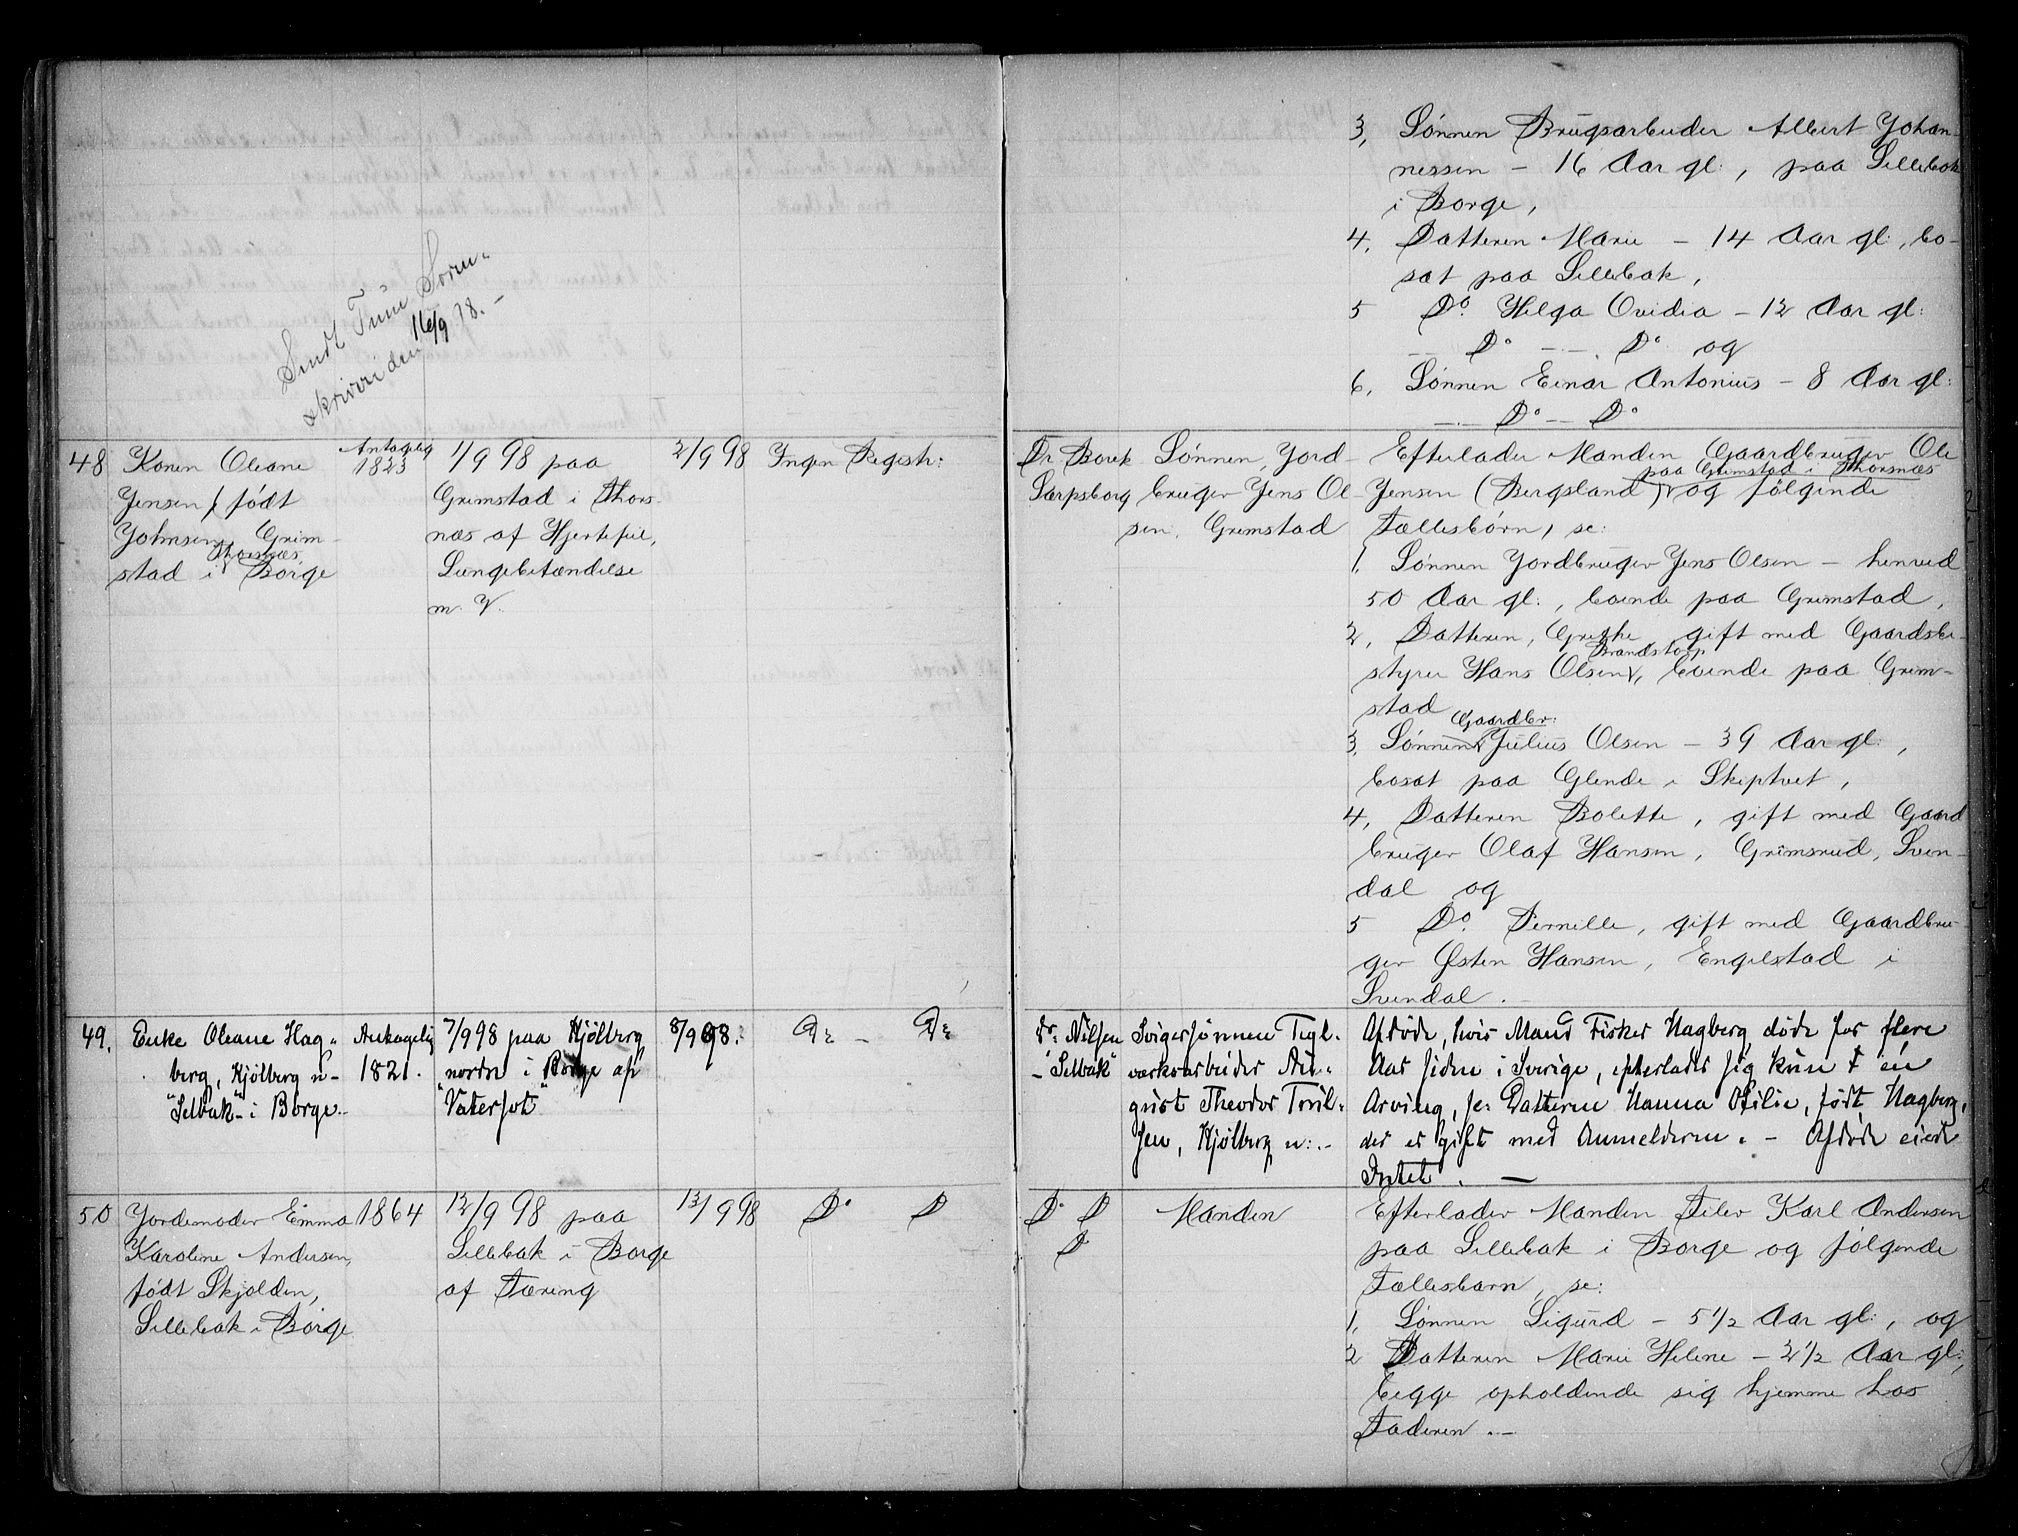 3, Sønnen Brugsarbeider Albert Johan-
nessen - 16 Aar gl:, paa Sellebak
i Borge,
4, Datteren Marie - 14 Aar gl:, bo-
sat paa Sellebak,
5 Do. Helga Ovidia - 12 Aar gl:
Do Do og
6, Sønnen Einar Antonius - 8 Aar gl:
Do Do
Sendt Tune Soren-
skriveri den 16/9 98.-
48 Konen Oleane
Jensen, født
Johnsen, Grim-
stad i Thorsnæs Borge
Antagelig
1823
1/9 98 paa
Grimstad i Thors-
næs af Hjertefeil,
Lungebetændelse
m. V.
2/9 98 Ingen Registr:
Dr Borck
Sarpsborg
Sønnen, Jord-
bruger Jens Ol-
sen, Grimstad
Efterlader Manden Gaardbruger Ole
Jensen (Bergsland) paa Grimstad i Thorsnæs og følgende
Fællesbørn, se:
1, Sønnen Jordbruger Jens Olsen - henved
50 Aar gl:, boende paa Grimstad,
2, Datteren, Grethe, gift med Gaardsbe-
styrer Hans Olsen Brandstorp, boende paa Grim-
stad
3, Sønnen Gaardbr: Julius Olsen - 39 Aar gl:,
bosat paa Glende i Skiptvet,
4, Datteren Bolette, gift med Gaard
bruger Olaf Hansen, Grimsrud, Sven-
dal og
5 Do. Pernille, gift med Gaardbru-
ger Østen Hansen, Engelstad i
Svendal.-
49. Enke Oleane Hag-
berg, Kjølberg n-
"Selbak" i Borge.
Antagelig
1821.
7/9 98 paa Kjølberg
nordre i Borge af
"Vatersot"
8/9 98. Do - Do
Dr. Nilsen
- "Selbak"
Svigersønnen Tegl-
værksarbeider Au-
gust Theodor Toril-
sen, Kjølberg n:-
Afdøde, hvis Mand Fisker Hagberg, døde for flere
Aar siden i Sverige, efterlader sig kun 1 én
Arving, se: Datteren Hanna Ofilie, født Hagberg,
der er gift med Anmelderen. - Afdøde eiede
Intet. -
50 Jordemoder Emma
Karoline Andersen,
født Skjolden,
Sellebak i Borge
1864
12/9 98 paa
Sellebak i Borge
af Tæring
13/9 98 Do D
Do D
D
Manden
Efterlader Manden Filer Karl Andersen
paa Sellebak i Borge og følgende
Fællesbarn, se:
1, Sønnen Sigurd - 5 1/2 Aar gl:, og
2 Datteren Marie Helene - 2 1/2 Aar gl:,
begge opholdende sig hjemme hos
Faderen.-